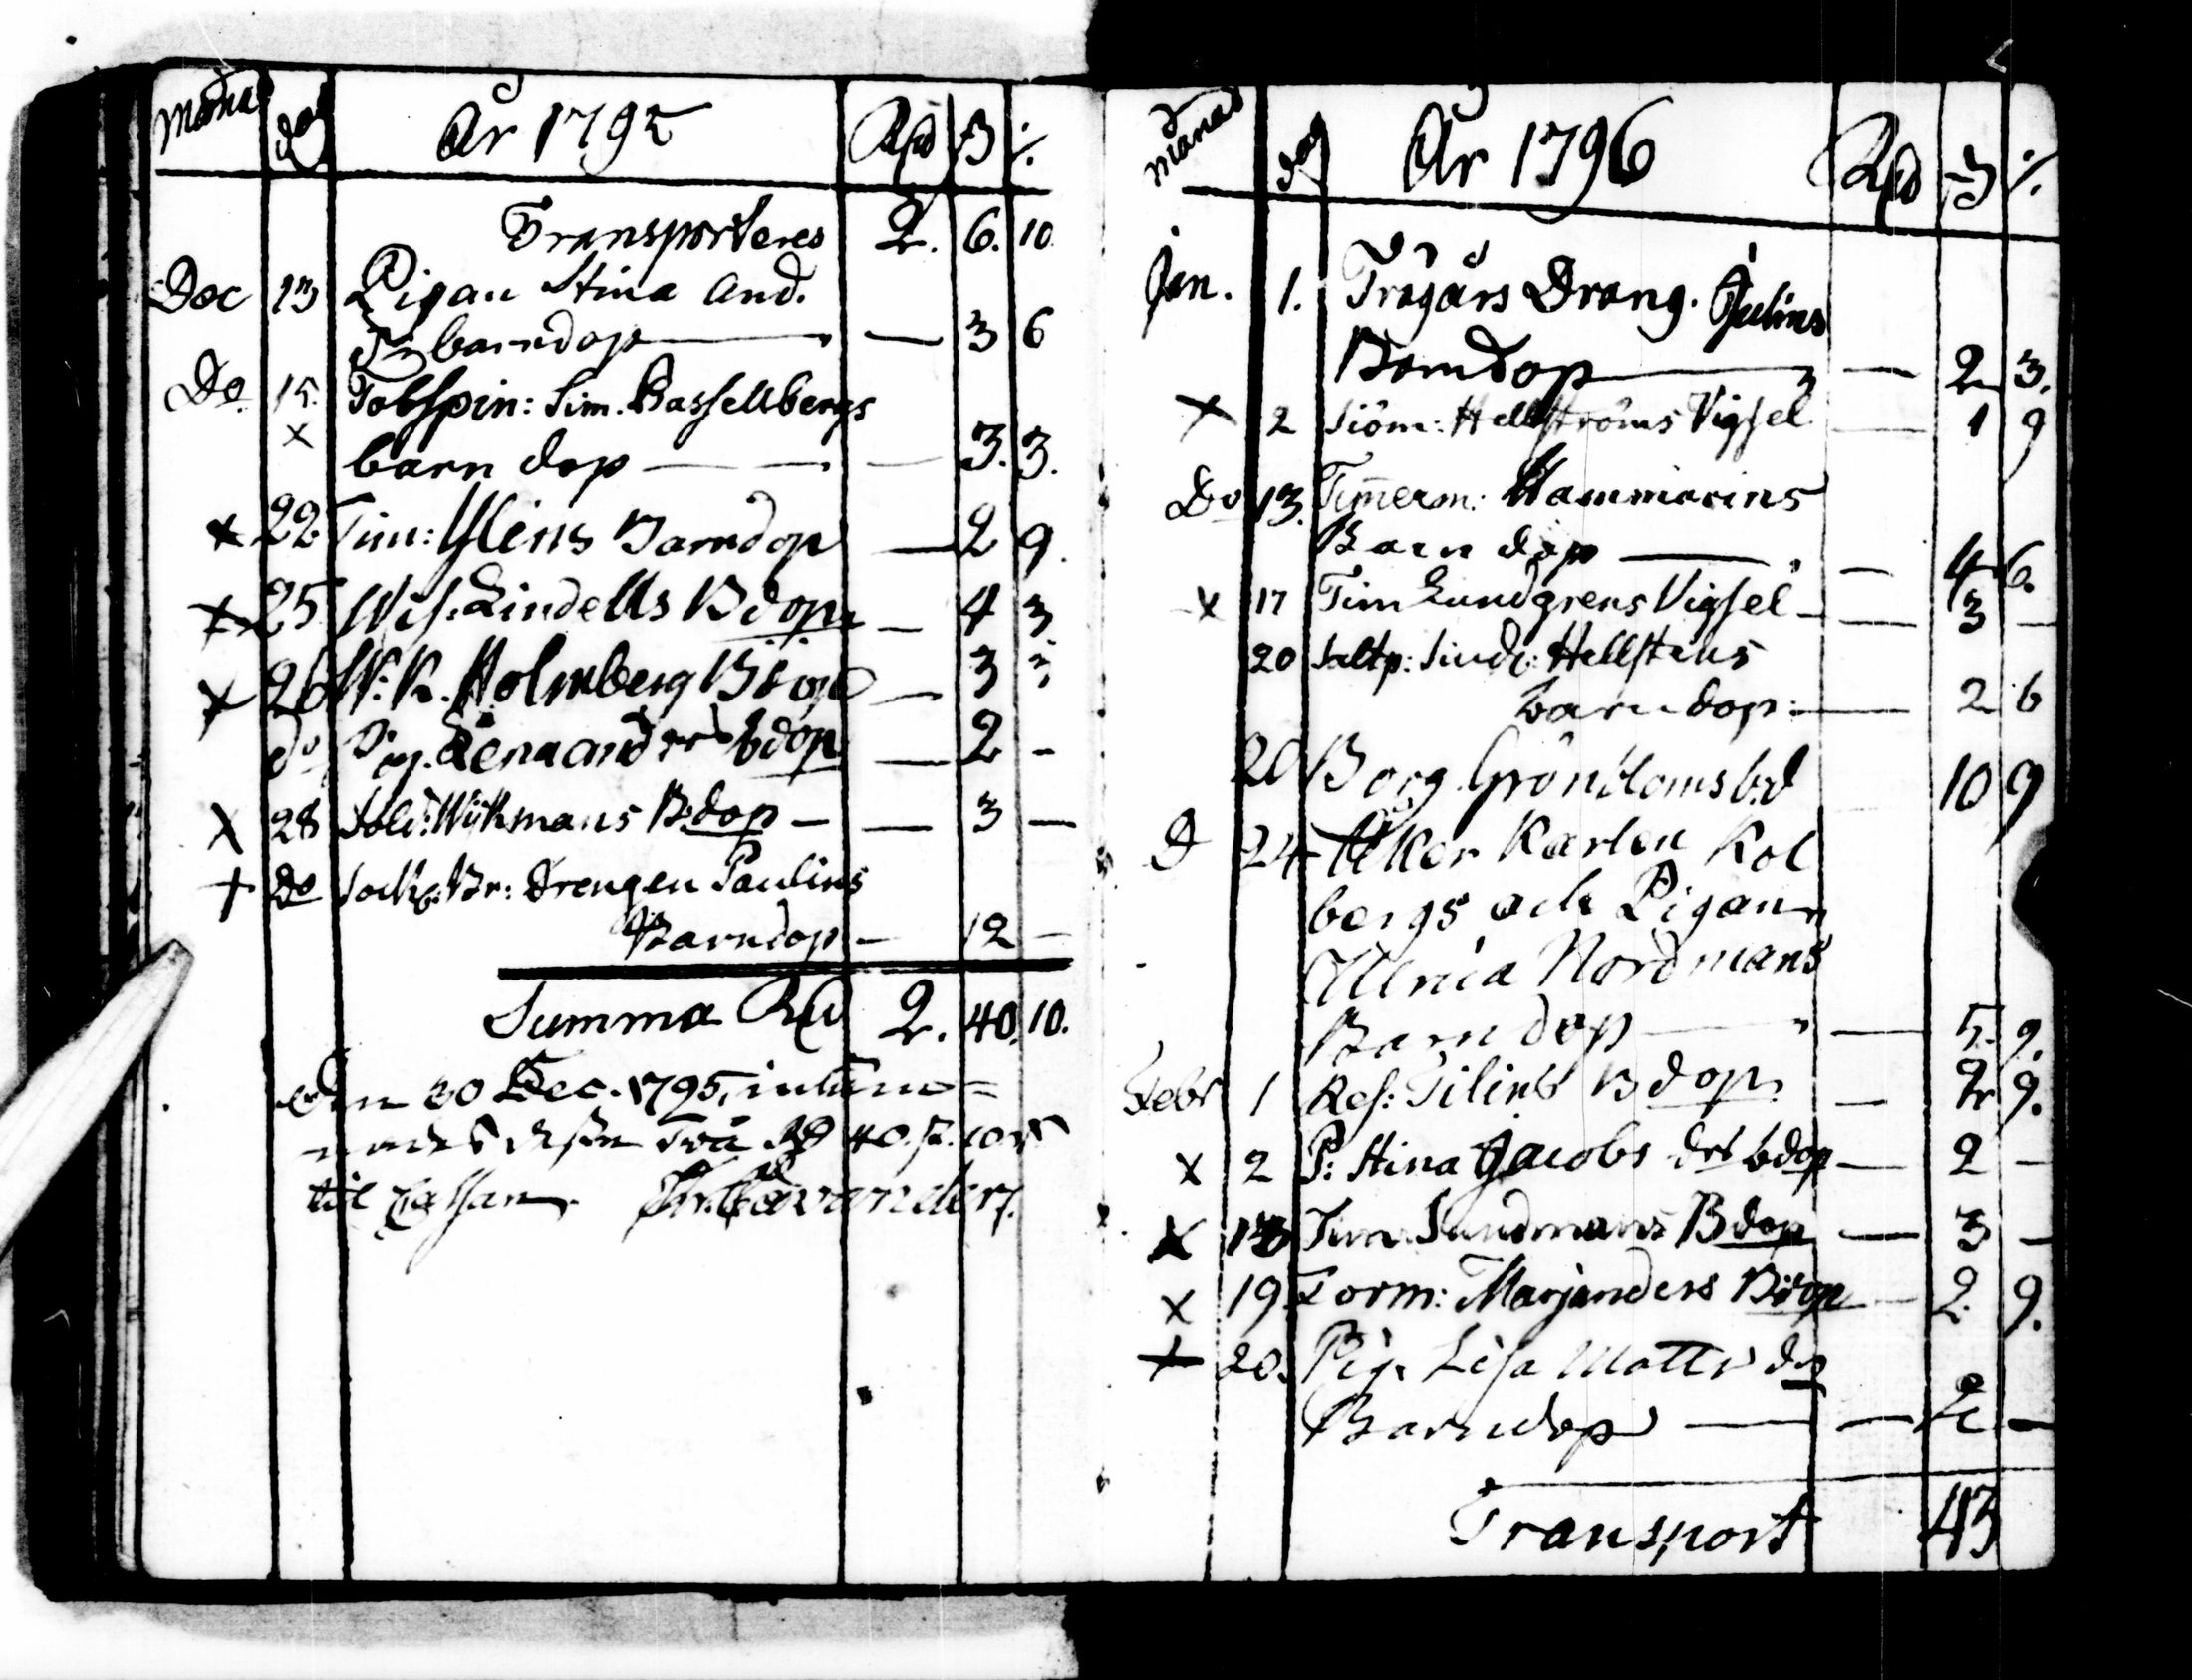 Månad dag År 1795 Rd ß /.
Transporteres 2. 6. 10.
Dec 13 Pigan Stina And.
barndop — — 3 6
Do 15. Tobspin: Sim. Hassellbergs
x barn dop — — — 3. 3.
x 22 Tim: Ulins Barndop — 2 9.
x 25 Wis: Lindells Bdop — 4 3
x 26 W: K. Holmberg Bdop — 3 3
do Pig. Lena anders Bdop — 2 -
x 28 Sold: Wikmans B:dop — — 3 —
+ Do Sock: Br: Drengen Paulins
Barndop — 12 —
Summa Rd 2. 40. 10.
den 30 Dec. 1795, inläm=
nades Två Rd 40. ß. 10
til Cassan.
Månad dag År 1796 Rd ß /.
Jan. 1. Trägårs Dräng. Julins
Barndop — — 2 3.
x 2 Siöm: Hellströms Vigsel — 1 9
Do 13. Tim̄erm: Hammarins
Barn dop — — 4 6.
x 17 Tim Lundgrens Vigsel — — 3 —
20 Saltp: Siud: Hellstens
barndop: — 2 6
20 Borg. Grönbloms b:d 10 9
D 24 Åker Karlen Kol
bergs ach Pigan
Ulrica Nordmans
Barn dop — — 5. 9.
Febr 1 Ref: Tilins Bdop — 2 9.
x 2 P: Stina Jacobs dr bdop — 2 —
x 13 Tim: Sundmans Bdop — 3 —
x 19. Form: Marjanders Bdop — 2. 9.
x 20. Pig. Lisa Matts dr
Barndop — — 2 —
Transport 43